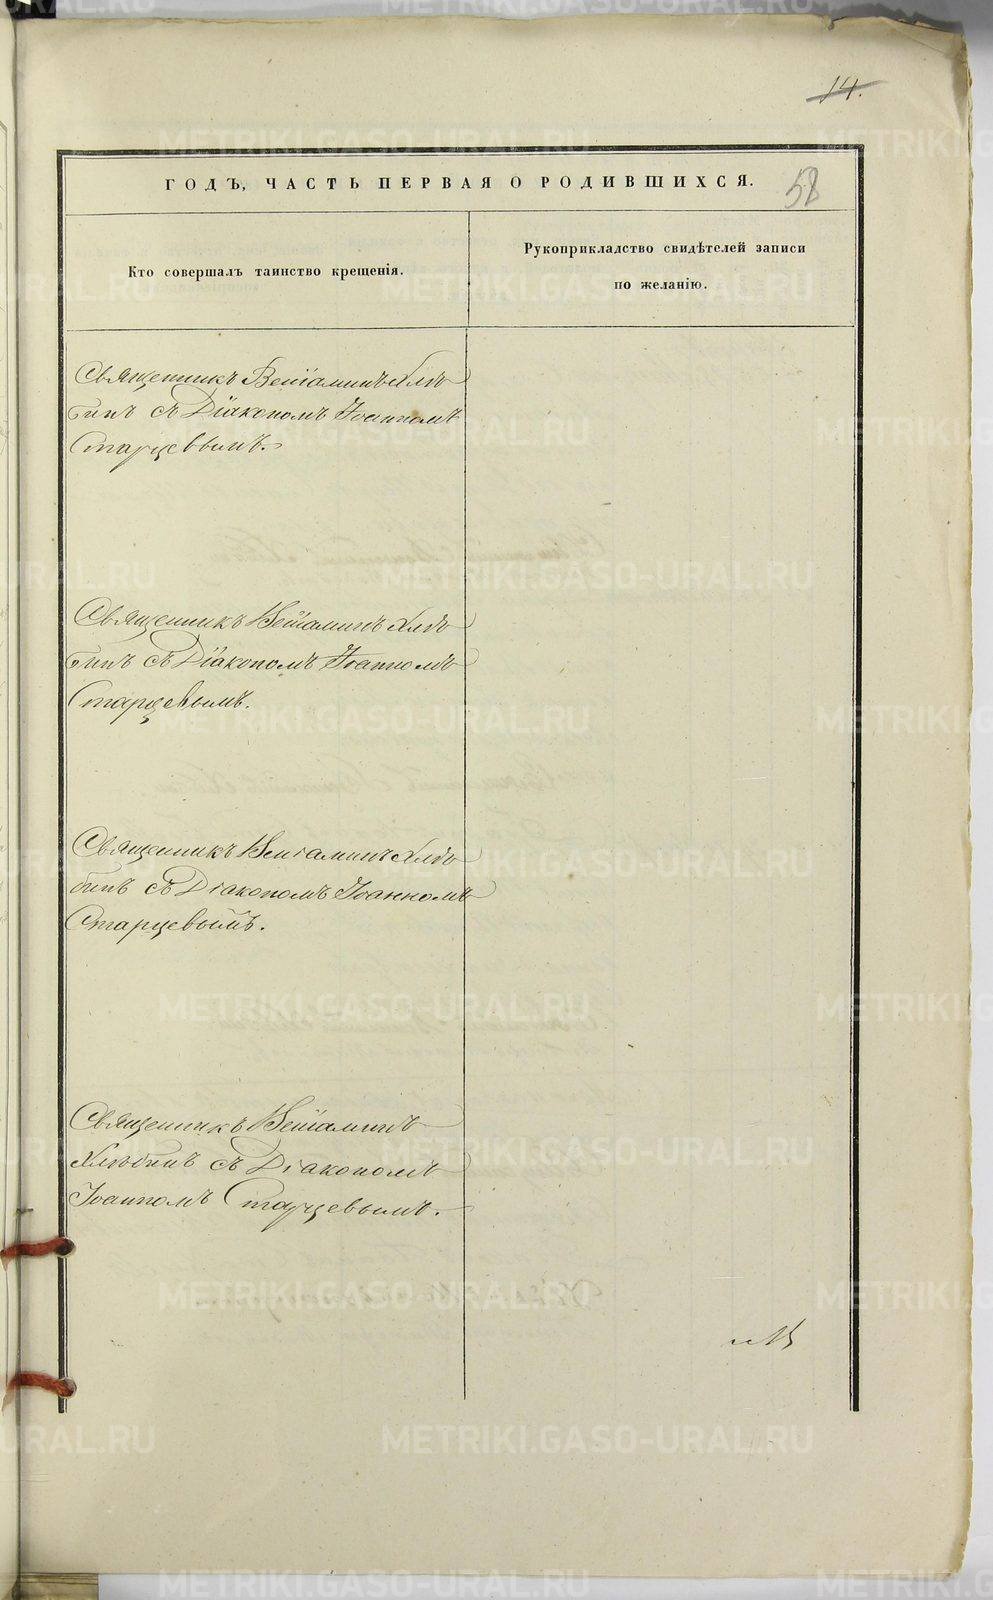 14.
ГОДЪ, ЧАСТЬ ПЕРВАЯ О РОДИВШИХСЯ.
58
Кто совершалъ таинство крещенія.
Рукоприкладство свидѣтелей записи
по желанію.
Священникъ Веніаминъ Хлѣ
бинъ съ Діакономъ Іоанномъ
Старцевымъ.
Священникъ Веніаминъ Хлѣ
бинъ съ Діакономъ Іоанномъ
Старцевымъ.
Священникъ Веніаминъ Хлѣ
бинъ съ Діакономъ Іоанномъ
Старцевымъ.
Священникъ Веніаминъ
Хлѣбинъ съ Діакономъ
Іоанномъ Старцевымъ.
METRIKI.GASO-URAL.RU